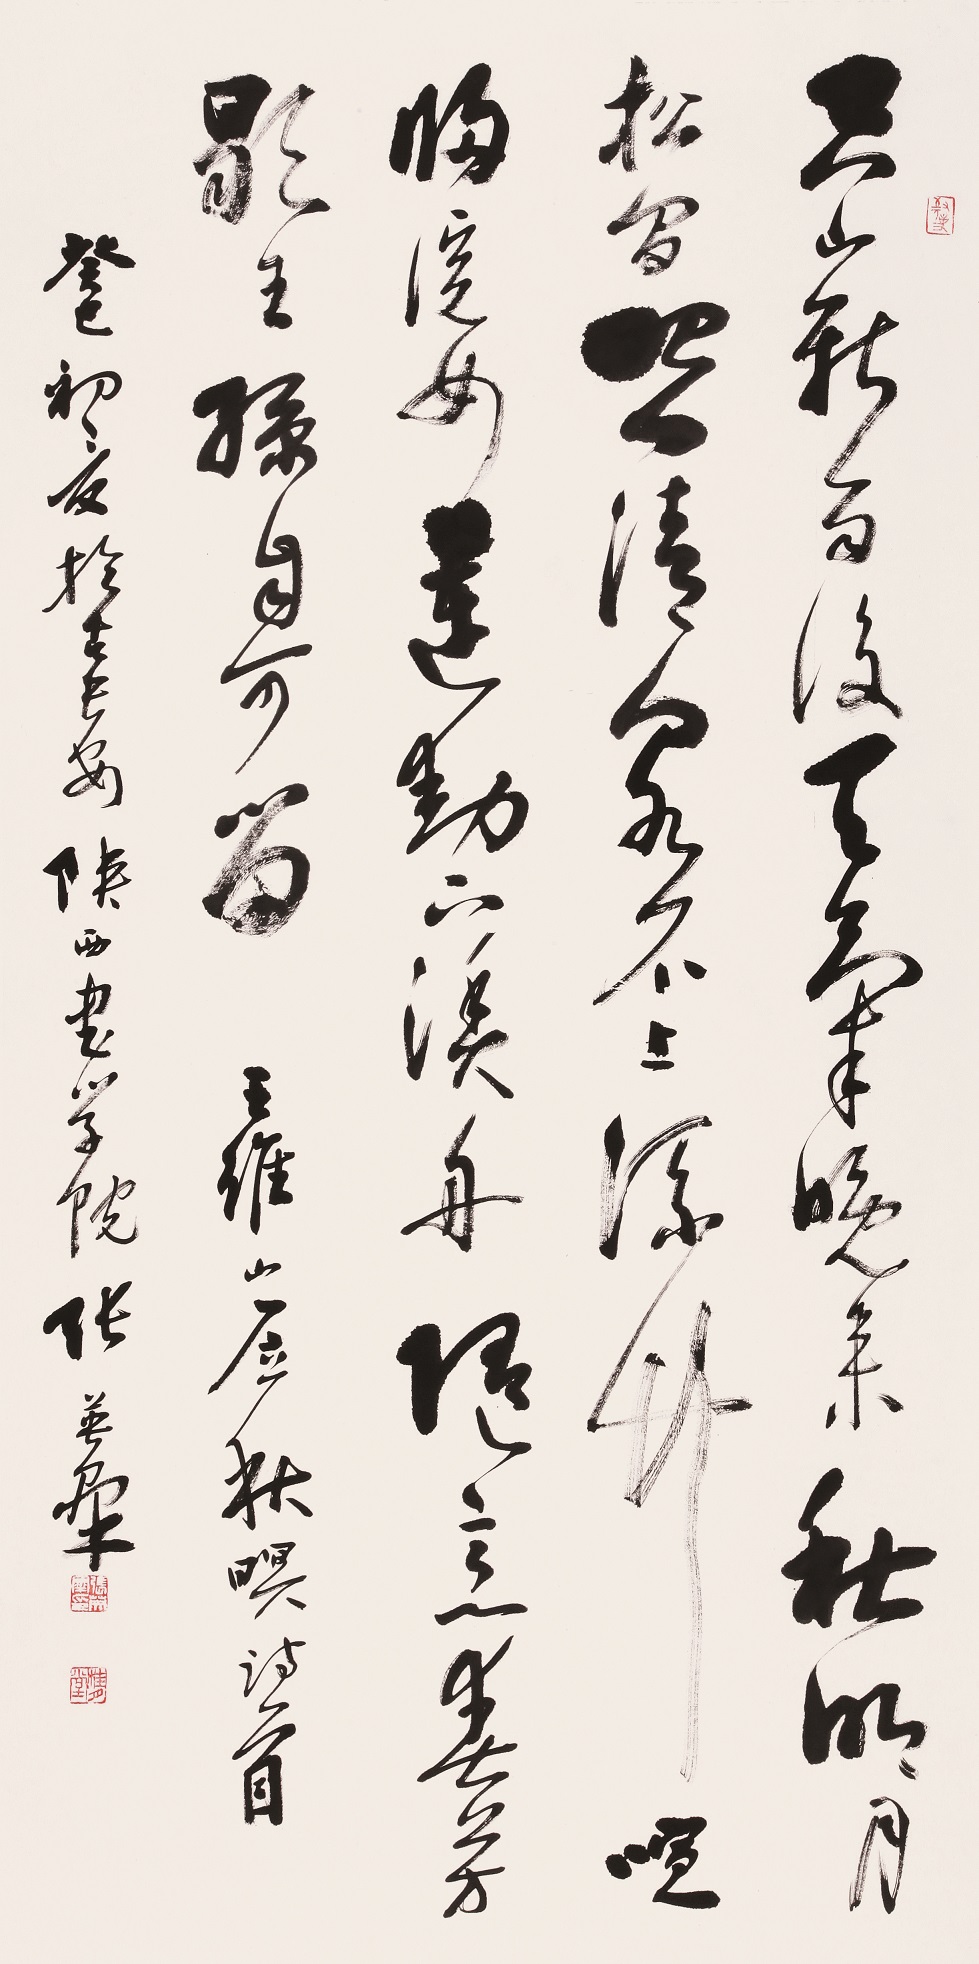 空山新雨後天氣晚来秋明月
松間照清泉石上流竹喧
歸浣女蓮動下漁舟隨意春芳
歇王孫自可留 王維山居秋暝诗一首
癸巳初夏於古長安 陕西書学院 张